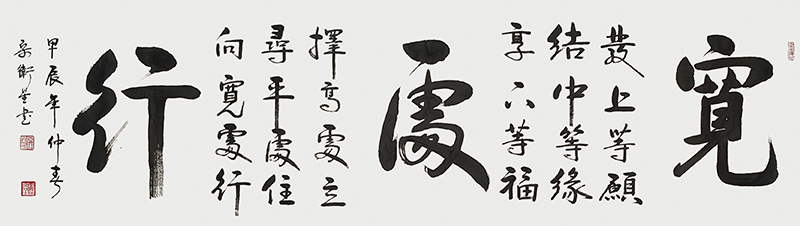 寬
發上等願
結中等緣
享下等福
處
擇高處立
尋平處住
向寬處行
行
甲辰年仲春